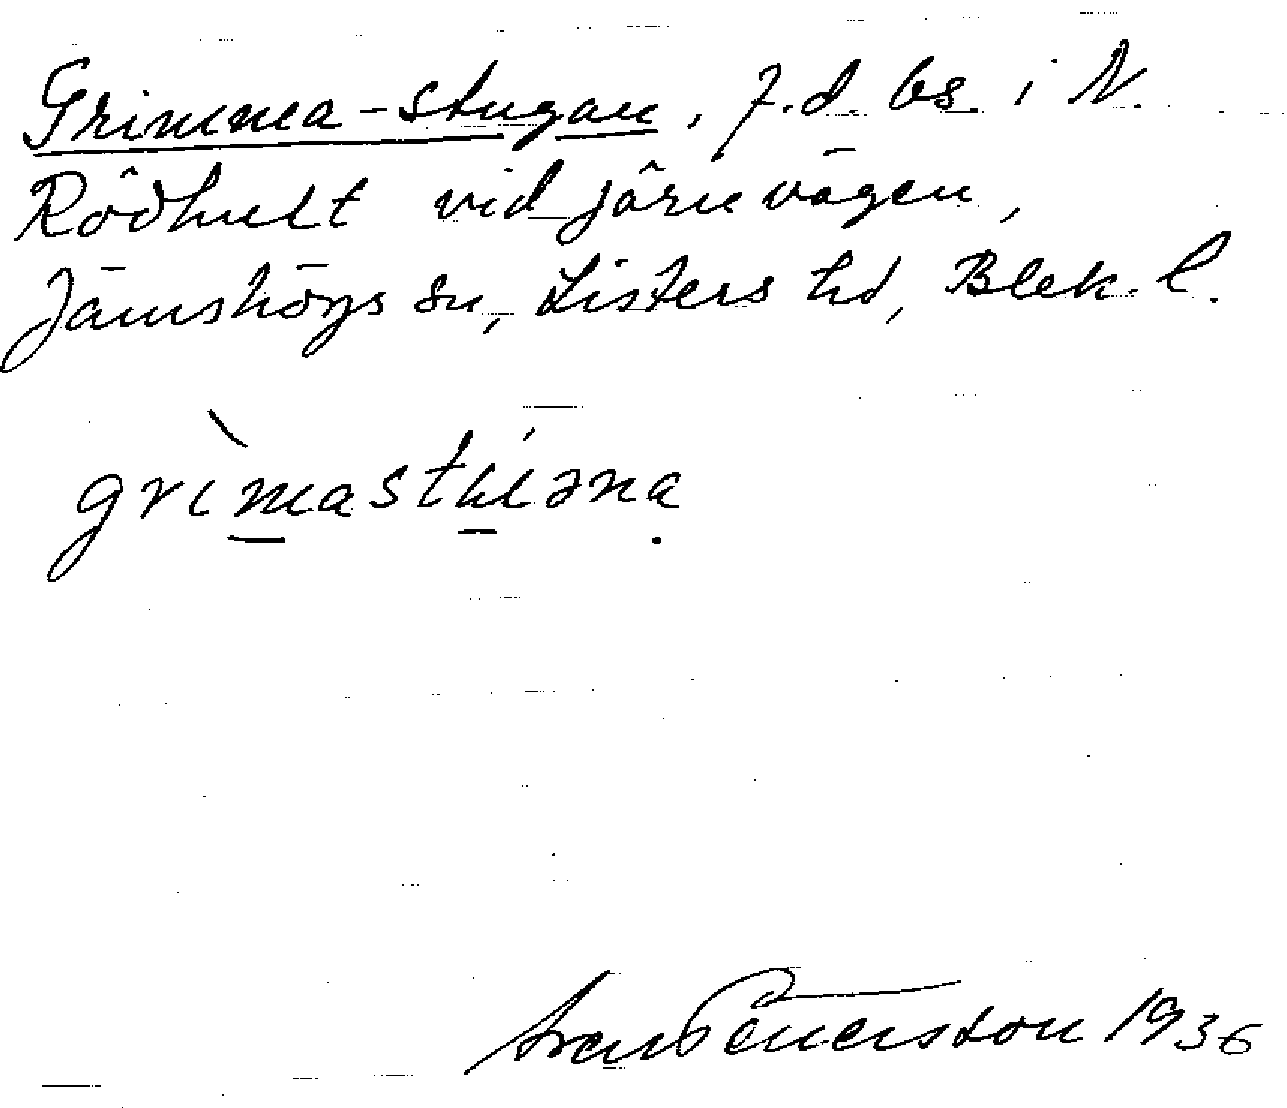 Grimma-stugan, f.d. bs. i N.
Rödhult vid järnvägen,
Jämshögs sn, Listers hd, Blek. l.
grìmastúəna
Sven Benerston 1936